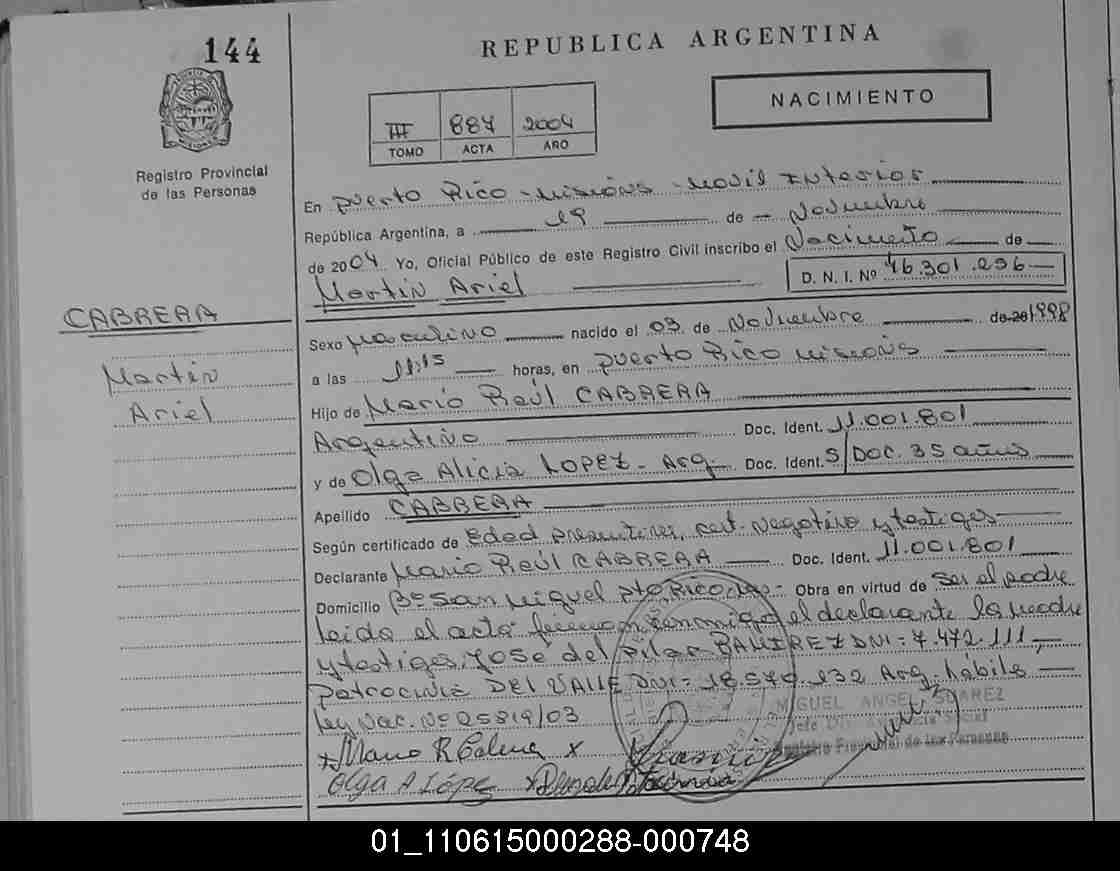 144
REPUBLICA ARGENTINA
NACIMIENTO
III 887 2004
TOMO ACTA AÑO
Registro Provincial
de las Personas
En Puerto Rico - Misiones - Movil Interior
República Argentina, a 19 de Noviembre
de 2004 Yo, Oficial Público de este Registro Civil inscribo el Nacimiento de
Martin Ariel D. N. I. Nº 46.301.296
CABRERA
Martin
Ariel
Sexo Masculino nacido el 03 de Noviembre de 20 1998
a las 11:15 horas, en Puerto Rico Misiones
Hijo de Mario Raúl CABRERA
Argentino Doc. Ident. 11.001.801
y de Olga Alicia LOPEZ - Arg. Doc. Ident. S/DOC. 35 años
Apellido CABRERA
Según certificado de Edad presuntiva, cert. negativo y testigos
Declarante Mario Raúl CABRERA Doc. Ident. 11.001.801
Domicilio Bº San Miguel Pto Rico, Ms. Obra en virtud de Ser el padre
leida el acta firman conmigo el declarante la madre
y testigos, José del Pilar RAMIREZ DNI = 7.472.111,
Patrocinia DEL VALLE DNI = 18.570.232 Arg. habiles
Ley Nac. Nº 25819/03
MIGUEL ANGEL SUAREZ
Registro Provincial de las Personas
x Mario R Cabrera x
Olga A López x
01_110615000288-000748